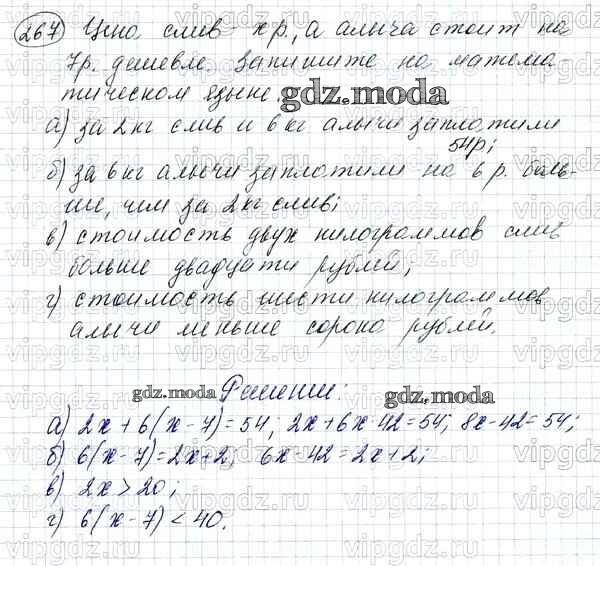 267 Цена слив - x р., а алыча стоит на
7р. дешевле. Запишите на матема-
тическом языке.
gdz.moda
а) за 2 кг слив и 6 кг алычи заплатили
54р;
б) за 6 кг алычи заплатили на 6 р. боль-
ше, чем за 2 кг слив;
в) стоимость двух килограммов слив
больше двадцати рублей;
г) стоимость шести килограммов
алычи меньше сорока рублей.
gdz.moda Решение: gdz.moda
а) 2x + 6(x - 7) = 54; 2x + 6x - 42 = 54; 8x - 42 = 54;
б) 6(x - 7) = 2x + 2; 6x - 42 = 2x + 2;
в) 2x > 20;
г) 6(x - 7) < 40.